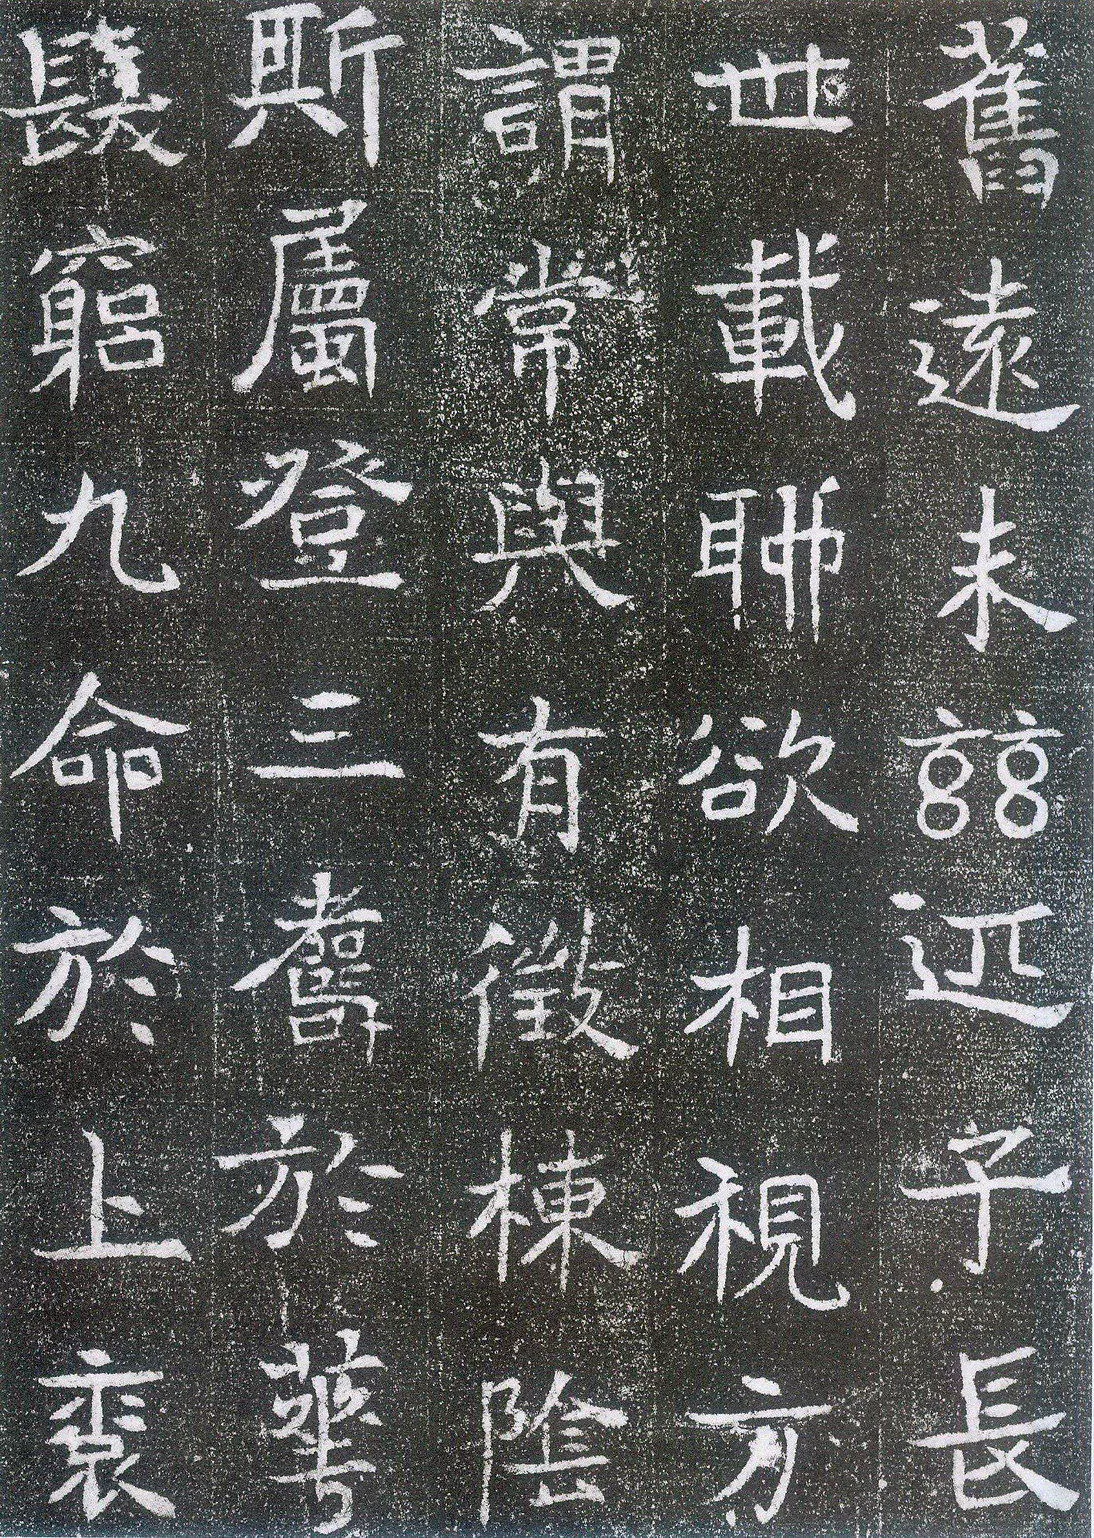 舊遠未玆近子長
世載聊欲相視方
謂常與有徵棟陰
斯屬登三壽於華
髮窮九命於上袞